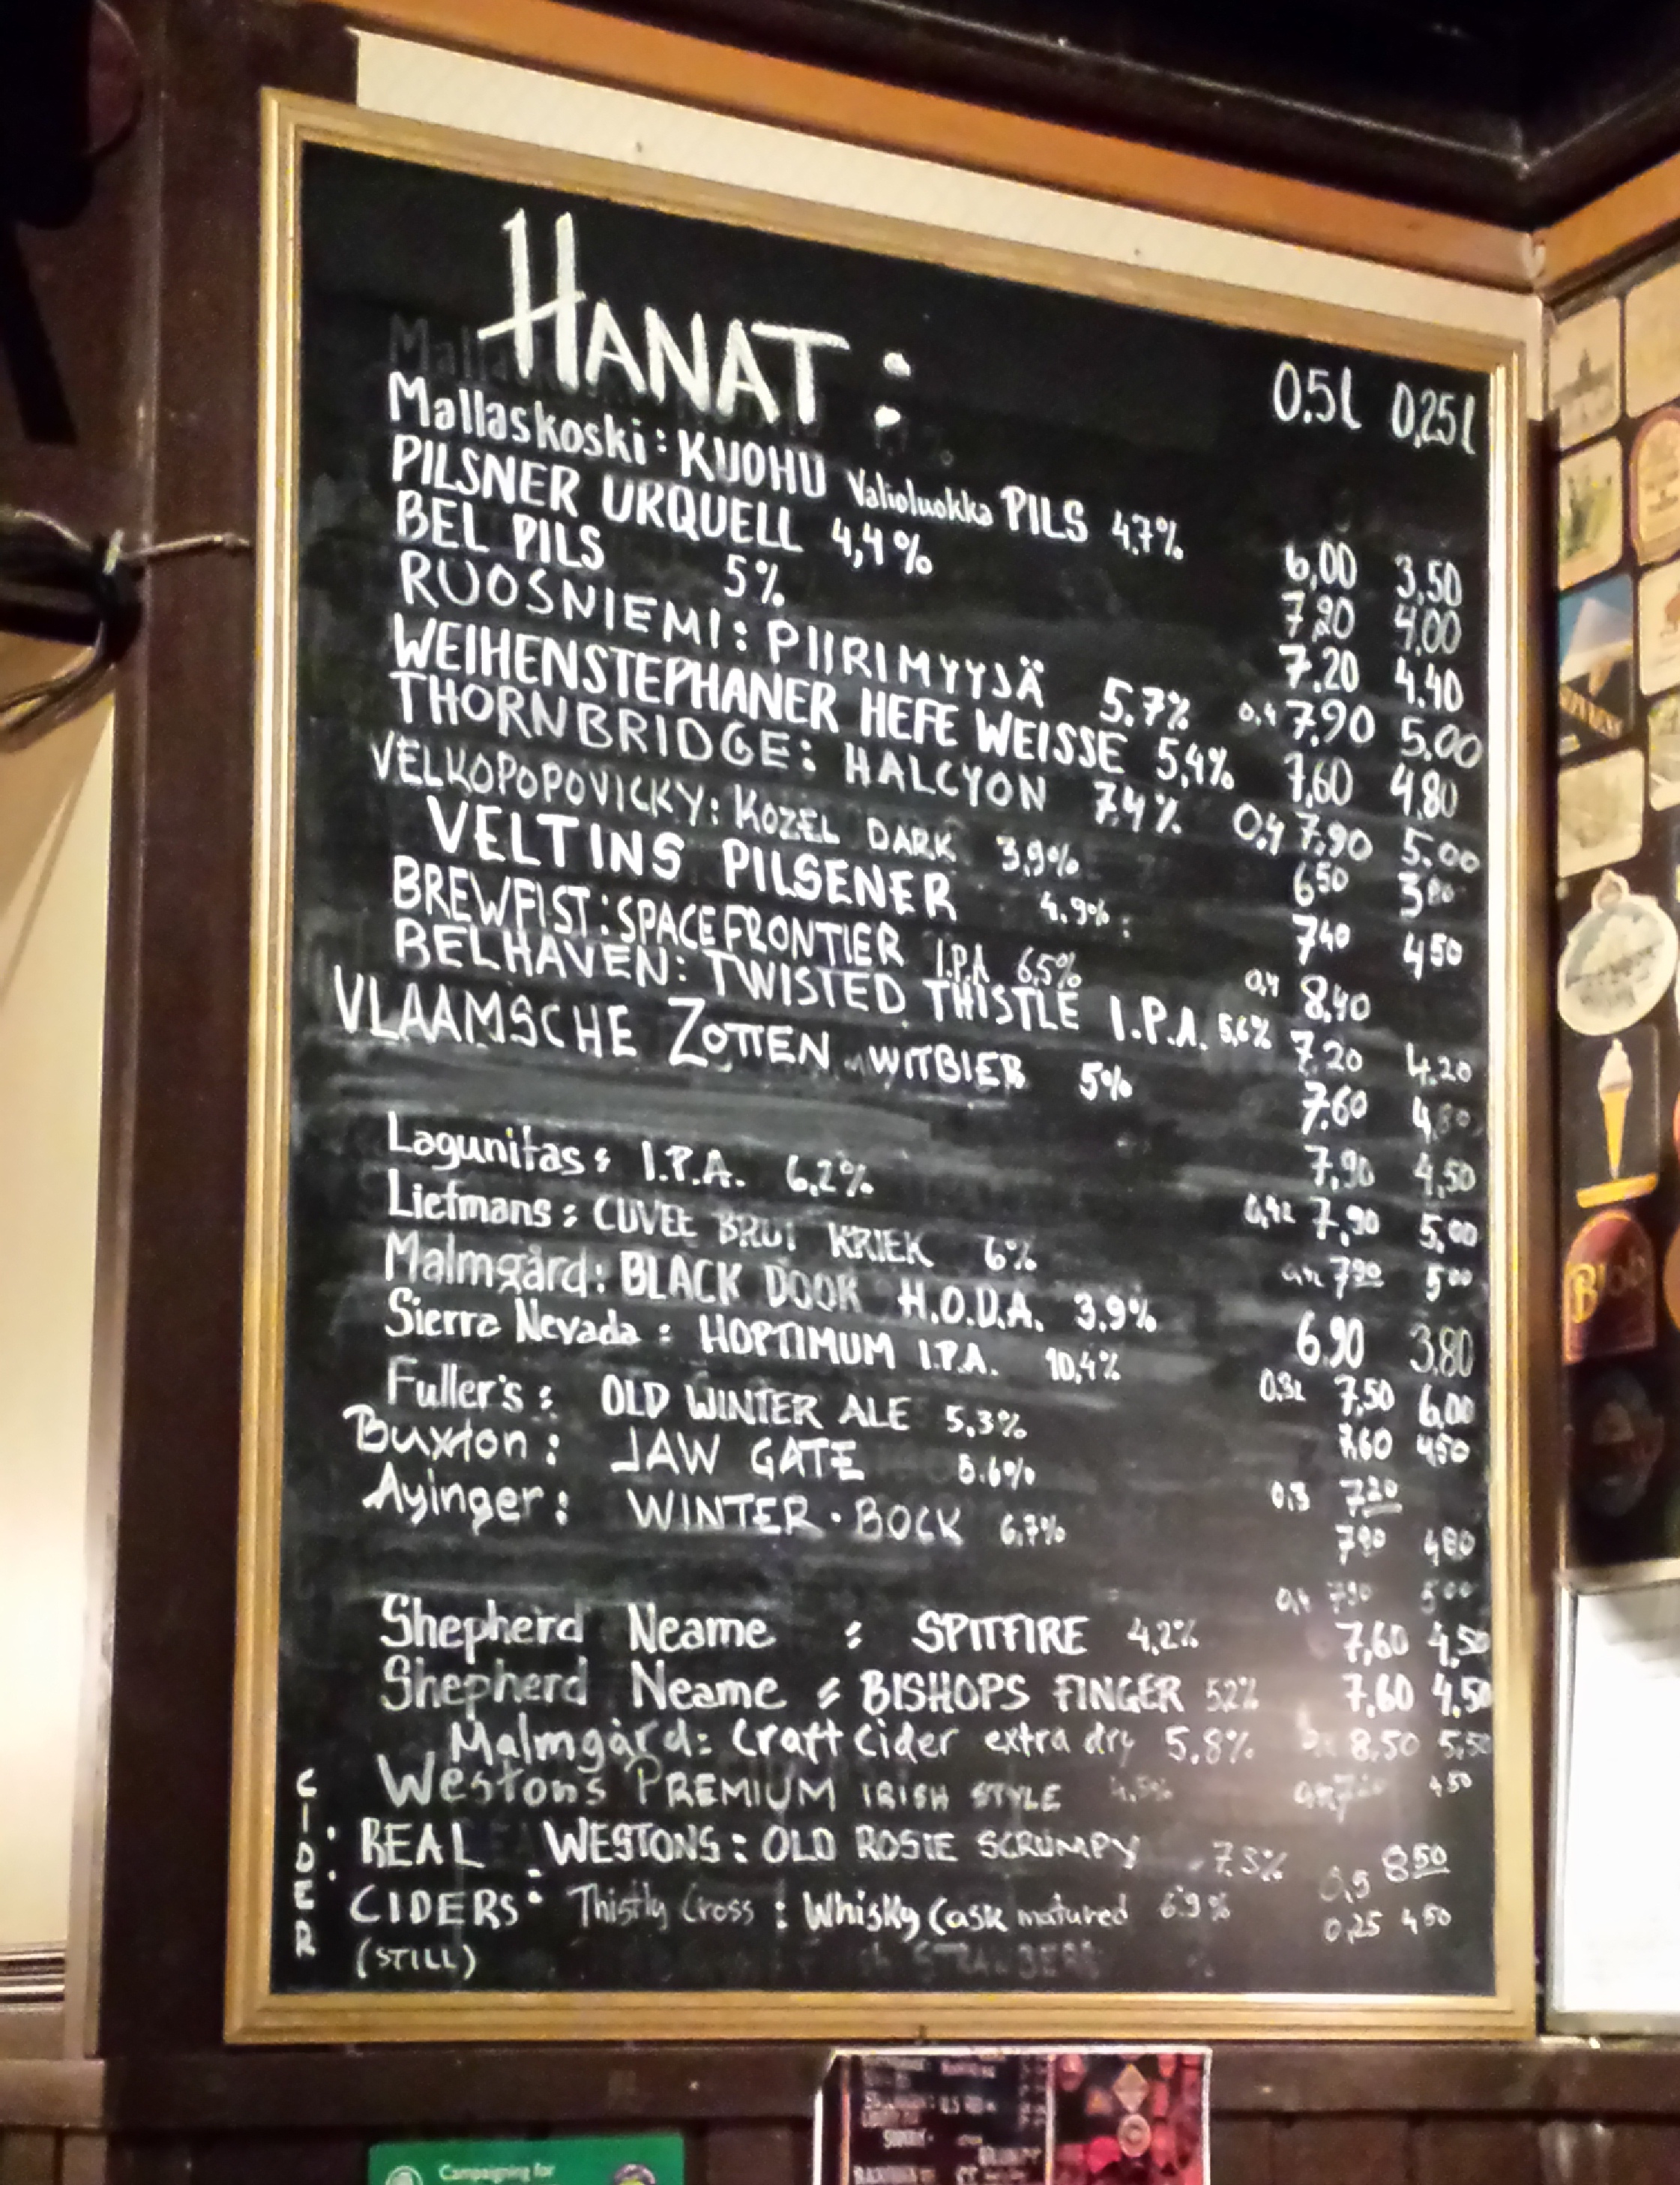 HANAT: 0.5l 0,25l
Mallaskoski: KUOHU Valioluokka PILS 4,7% 6,00 3,50
PILSNER URQUELL 4,4% 7,20 4,00
BEL PILS 5% 7.20 4.40
RUOSNIEMI: PIIRIMYYJÄ 5.7% 0,4 7.90 5.00
WEIHENSTEPHANER HEFE WEISSE 5,4% 7,60 4.80
THORNBRIDGE: HALCYON 7.4% 0,4 7,90 5.00
VELKOPOPOVICKY: KOZEL DARK 3,9% 6 50 3 80
VELTINS PILSENER 4.9% 7 40 4 50
BREWFIST: SPACE FRONTIER I.P.A 6,5% 0,4 8,40
BELHAVEN: TWISTED THISTLE I.P.A. 5,6% 7.20 4.20
VLAAMSCHE ZOTTEN WITBIER 5% 7.60 4,80
Lagunitas: I.P.A. 6,2% 7,90 4,50
Liefmans: CUVEE BRUT KRIEK 6% 7,90 5,00
Malmgård: BLACK DOOR H.O.D.A. 3,9% 6.90 3,80
Sierra Nevada: HOPTIMUM I.P.A. 10,4% 0,3l 7,50 6,00
Fuller's: OLD WINTER ALE 5,3% 7.60 4,50
Buxton: JAW GATE 5.6% 0,3 7 20
Ayinger: WINTER·BOCK 6,7% 7 90 4 80
Shepherd Neame: SPITFIRE 4,2% 7,60 4,50
Shepherd Neame: BISHOPS FINGER 5,2% 7,60 4,50
Malmgård: Craft Cider extra dry 5,8% 8,50 5,50
Westons PREMIUM IRISH STYLE 4,5% 4 50
CIDER
REAL WESTONS: OLD ROSIE SCRUMPY 7.3% 0,5 8 50
CIDERS: Thistly Cross: Whisky Cask matured 6.9% 0,25 4 50
(STILL)
Campaigning for